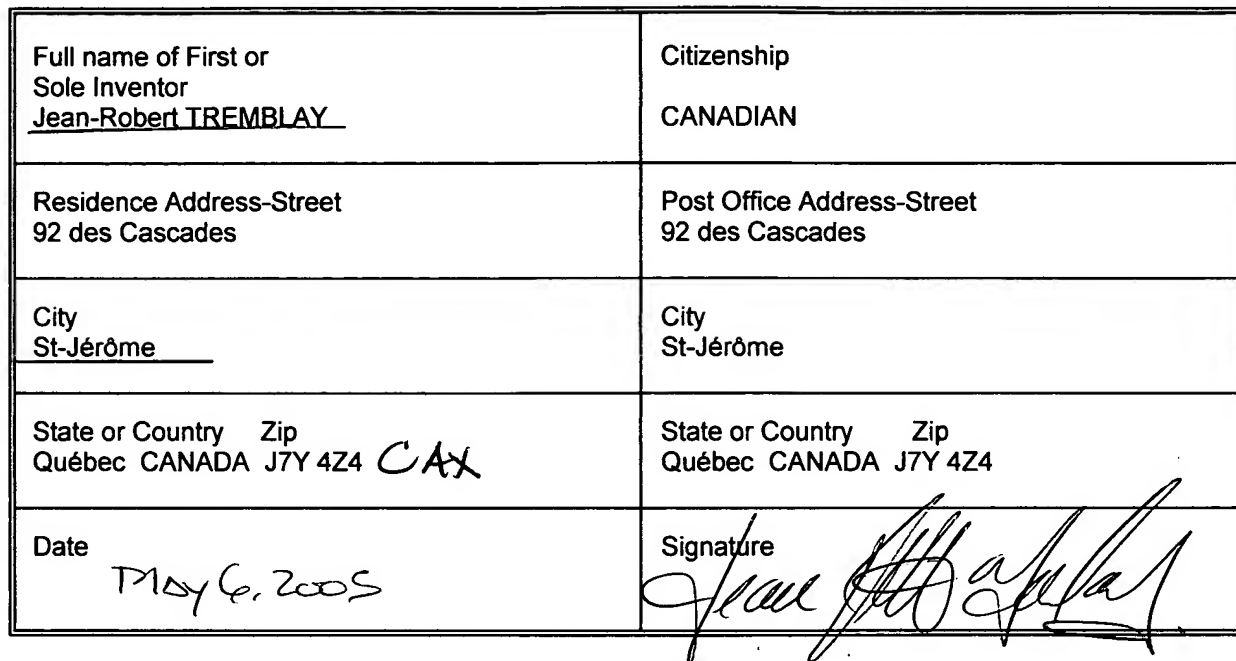 Full name of First or
Sole Inventor
Jean-Robert TREMBLAY
Citizenship
CANADIAN
Residence Address-Street
92 des Cascades
Post Office Address-Street
92 des Cascades
City
St-Jérôme
City
St-Jérôme
State or Country Zip
Québec CANADA J7Y 4Z4 CAX
State or Country Zip
Québec CANADA J7Y 4Z4
Date
May 6, 2005
Signature
Jean